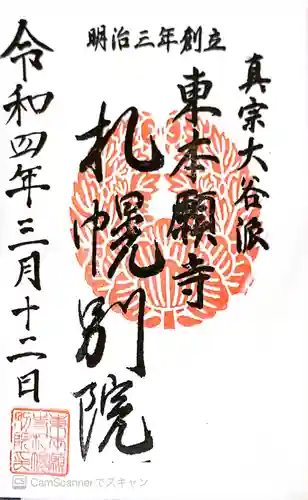 真宗大谷派
東本願寺
明治三年創立
札幌別院
令和四年三月十二日
CamScannerでスキャン